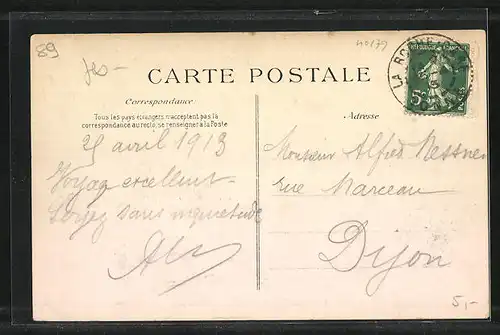 89
fls-
40179
LA ROCHE
RÉPUBLIQUE FRANÇAISE
5c
CARTE POSTALE
Correspondance
Tous les pays étrangers n'acceptent pas la
correspondance au recto, se renseigner à la Poste
Adresse
25 avril 1913
Voyage excellent-
Soyez sans inquietude
Monsieur Alfred Messner
rue Marceau
Dijon
5,-